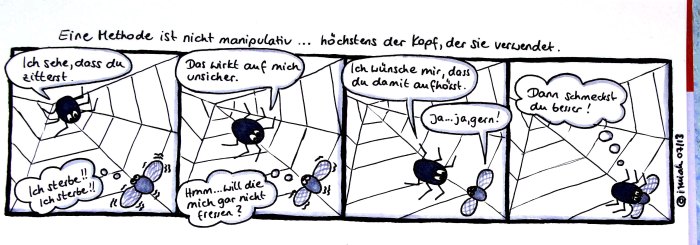 Eine Methode ist nicht manipulativ ... höchstens der Kopf, der sie verwendet.
Ich sehe, dass du
zitterst.
Ich sterbe!!
Ich sterbe!!
Das wirkt auf mich
unsicher.
Hmm...will die
mich gar nicht
fressen?
Ich wünsche mir, dass
du damit aufhörst.
Ja...ja, gern!
Dann schmeckst
du besser!
07/13